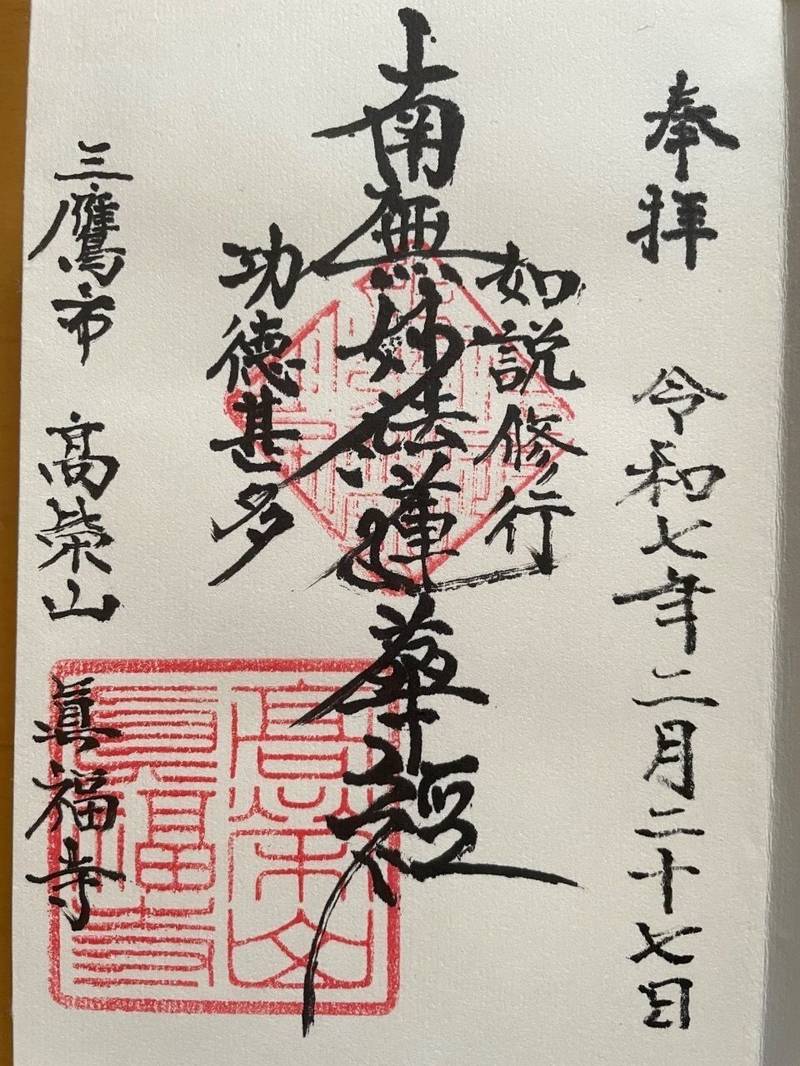 奉拝 令和七年二月二十七日
如説修行
南無妙法蓮華経
功徳甚多
三鷹市 髙榮山 眞福寺